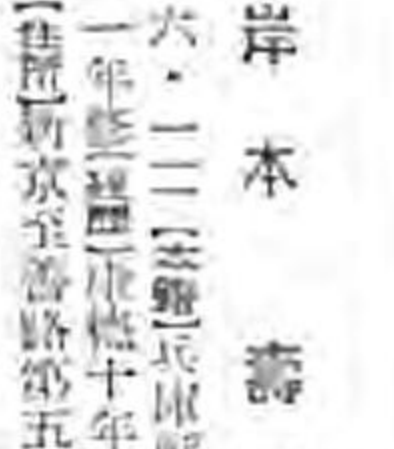 岸本 壽
六・一二【本籍】兵庫
一年【經歷】十年
【住所】新京至善路第五